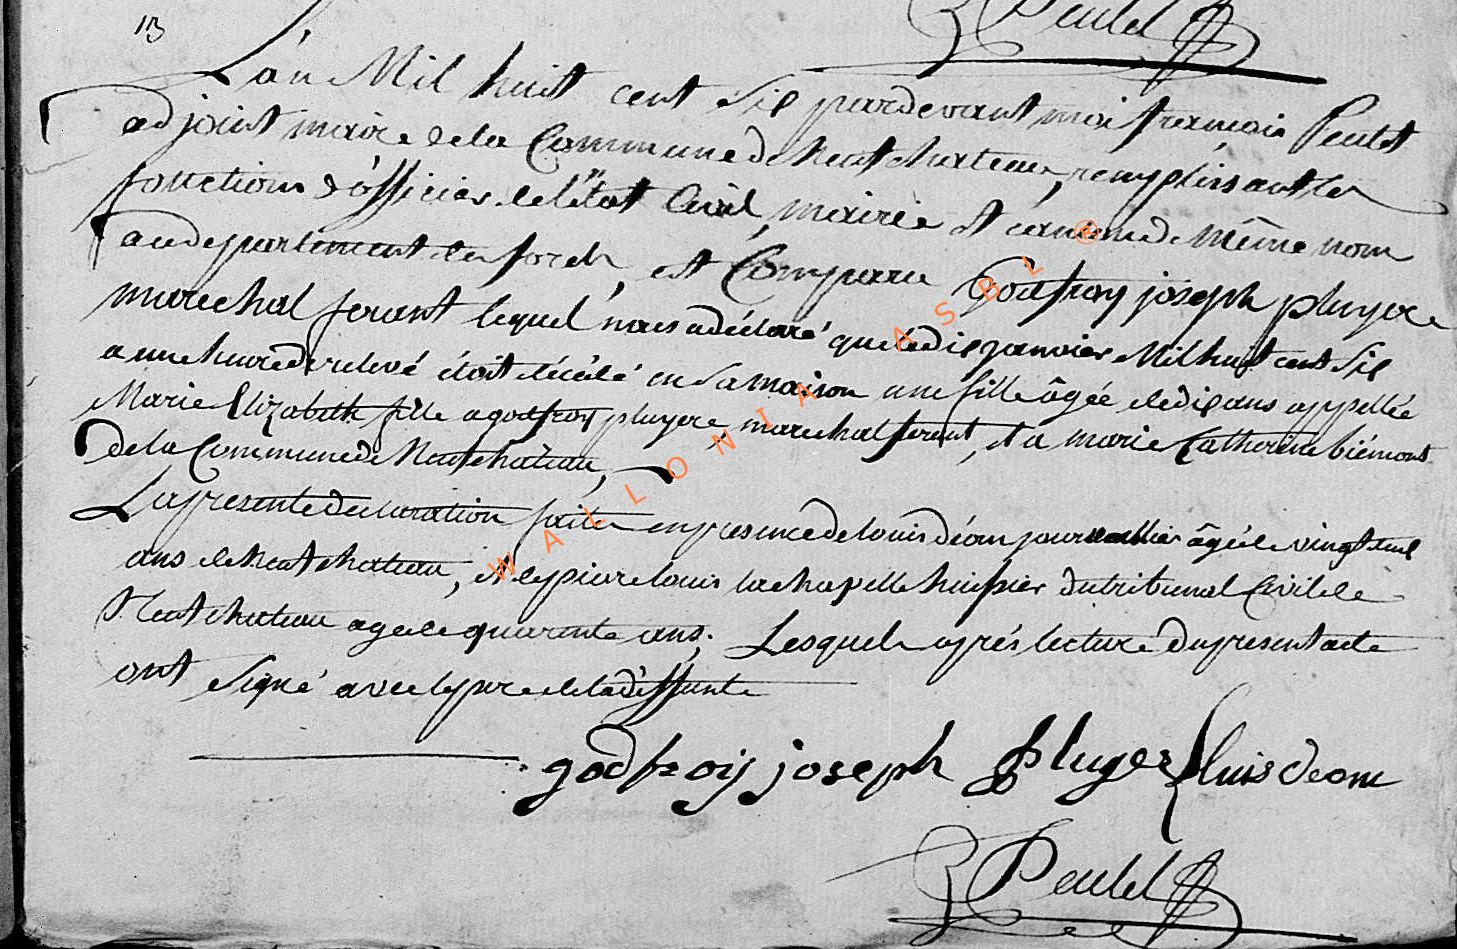 Peulet
13
L'an Mil huit cent Six pardevant moi françois Peutet
adjoint maire de la Commune de Neufchateau, remplissant les
fonctions d'officier de l'état Civil, mairie et canton de même nom
au departement des forets, est Comparu Godfroy joseph pluyere
marechal ferant lequel nous a déclaré que le dix janvier Mil huit cent Six
a une heure de relevé étoit décédé en sa maison une fille âgée de dix ans appellée
Marie Elizabeth fille a godfroy pluyere, marechal ferent, et a marie Catherine biémont
de la Commune de Neufchateau,
La presente declaration faite en presence de louis déom journallier âgé de vingt
ans de Neufchateau, et de piere louis lachapelle huissier du tribunal Civil de
Neufchateau age de quarente ans. Lesquels après lecture du present acte
ont signé avec le pere de la deffunte
godfroy joseph Pluger Louis deom
Peulet
WALLONIA ASBL ®